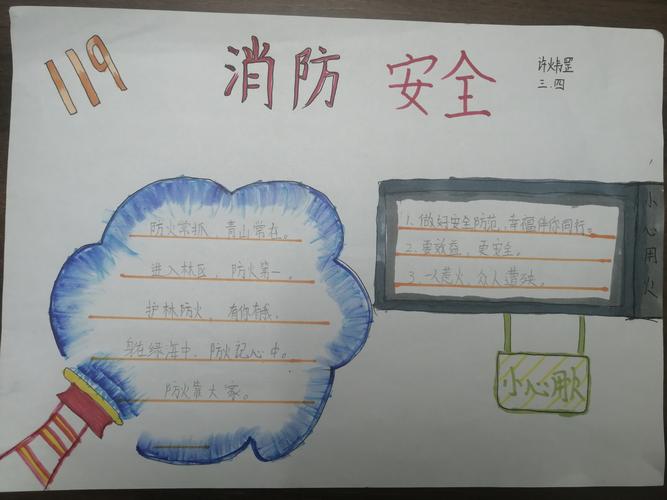 119
消防 安全
许炜罡
三.四
防火常抓，青山常在。
进入林区，防火第一。
护林防火，有你有我。
身在绿海中，防火记心中。
防火靠大家。
1. 做好安全防范，幸福伴你同行。
2. 要效益，更安全。
3. 一人惹火，众人遭殃。
小心用火
小心用火